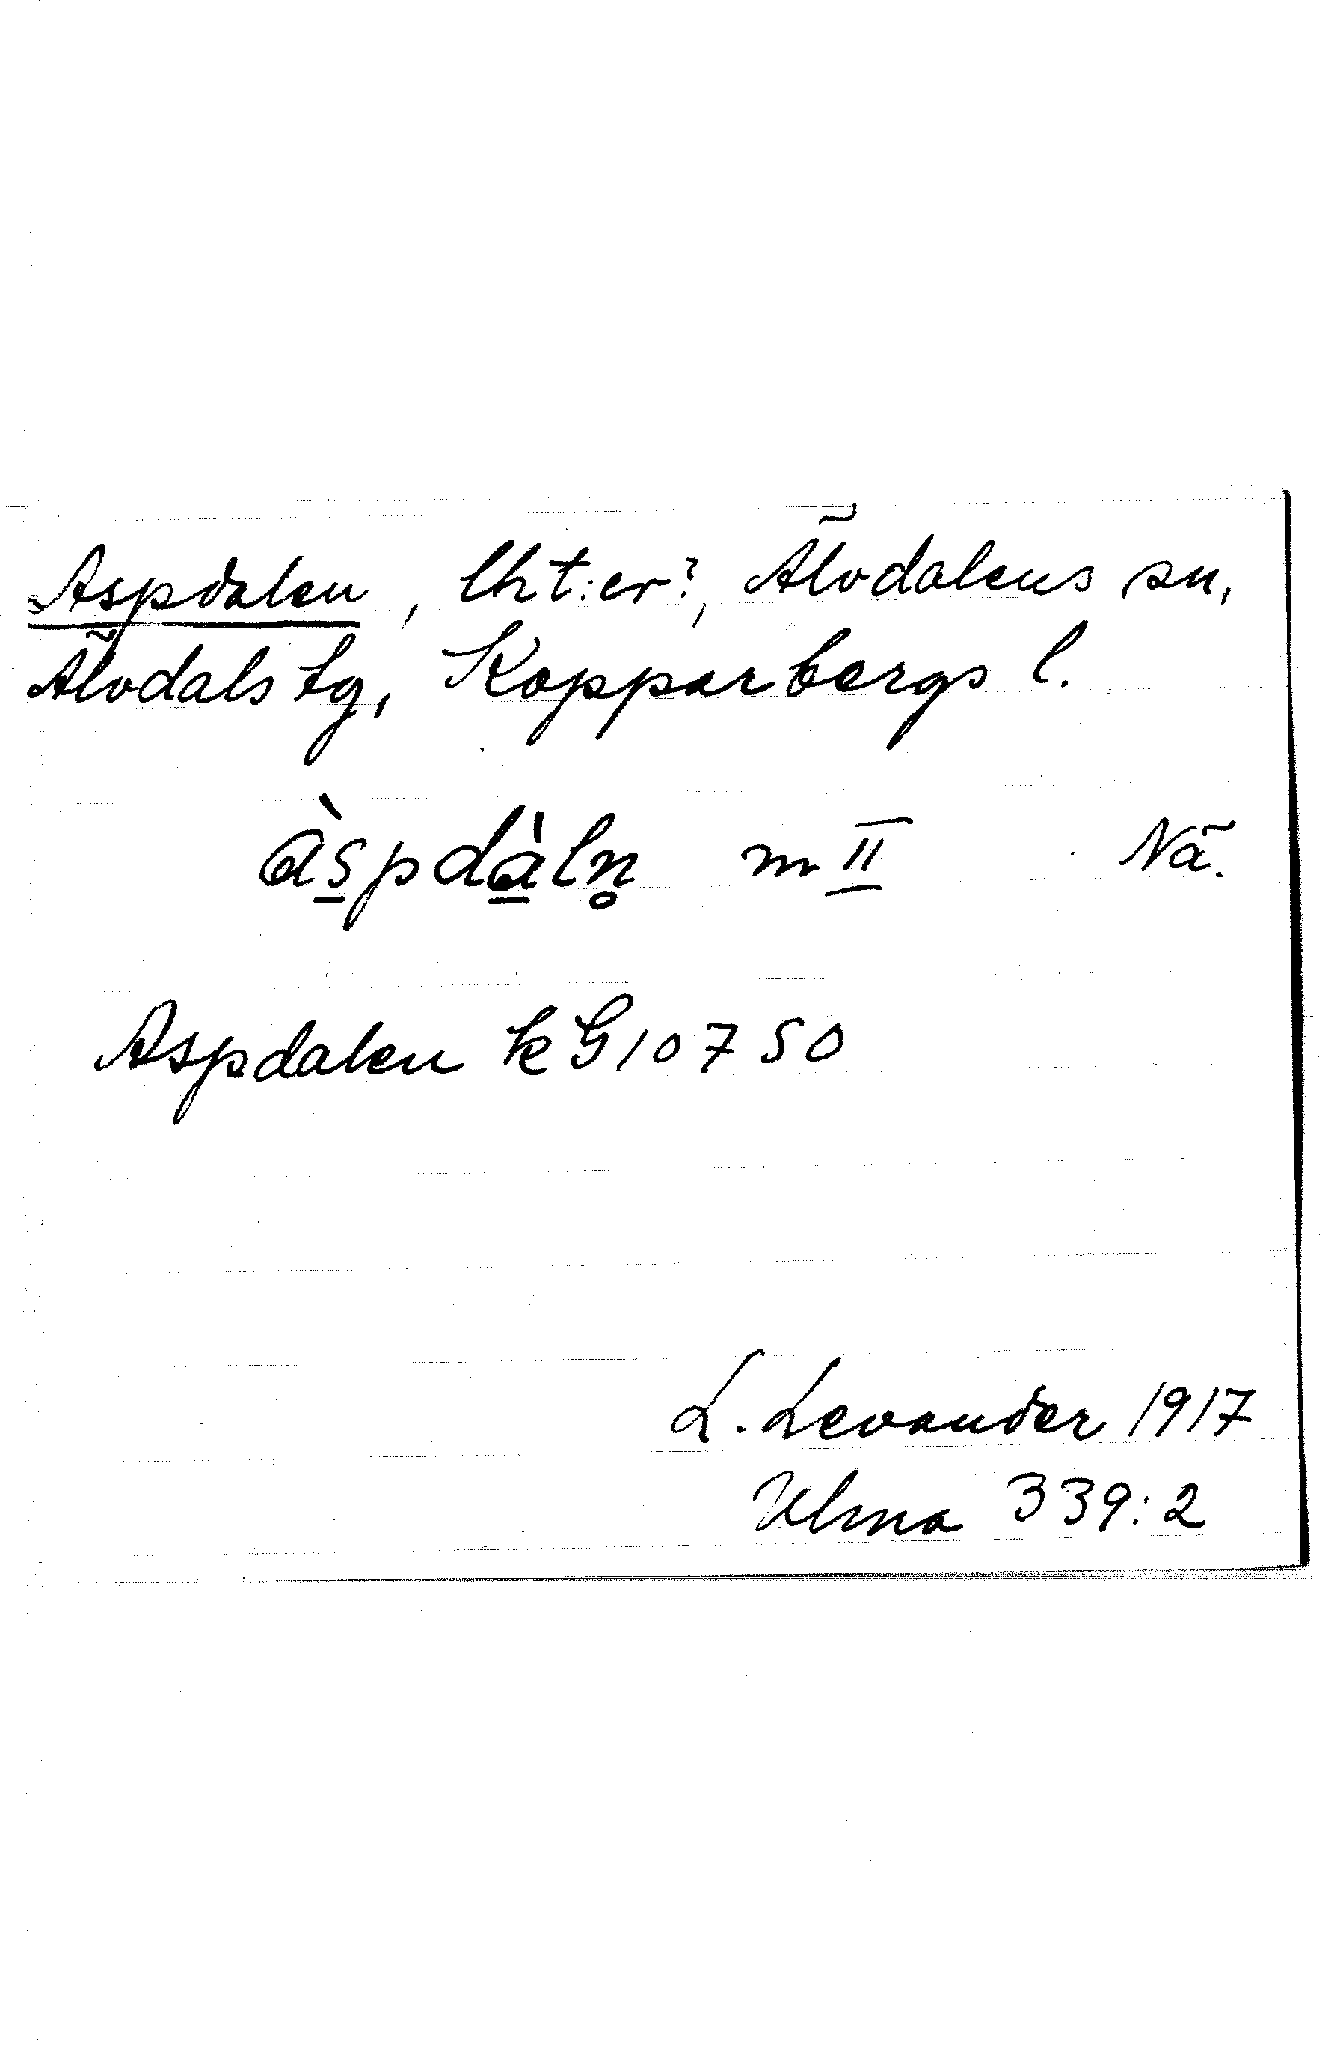 Aspdalen, lht:er?, Älvdalens sn,
Älvdals tg, Kopparbergs l.
às̲pdà̲ln̥ m II Nä.
Aspdalen kG10750
L. Levander 1917
Ulma 339:2